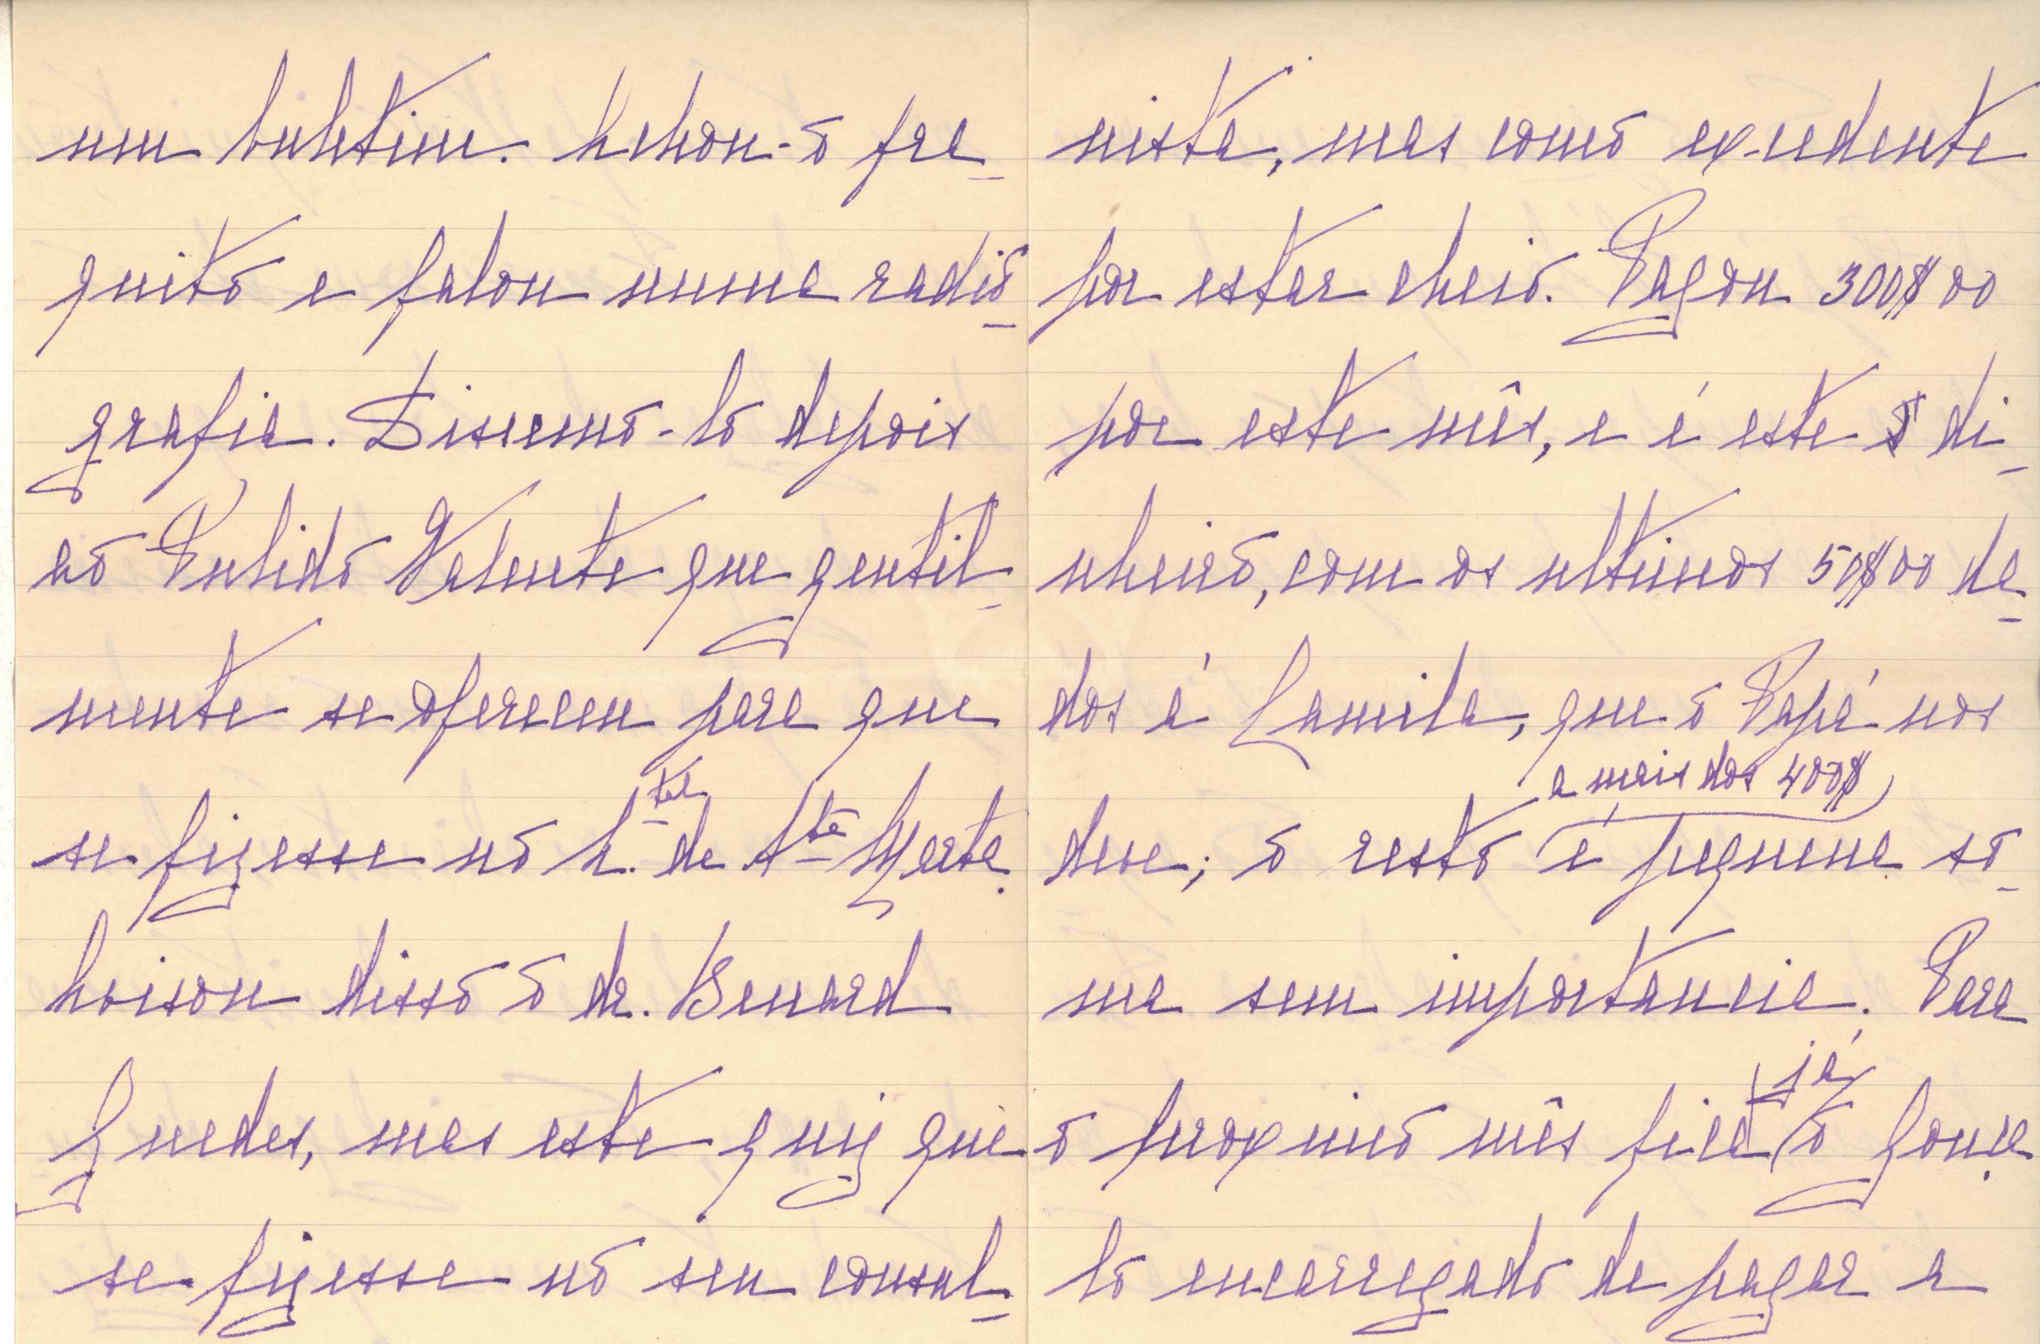 um buletim. Achou-o fra-
quito e falou numa radio-
grafia. Dissemo-lo depois
ao Pulido Valente que gentil-
mente se ofereceu para que
se fizesse no h.tal de Sta Marta.
Avisou disso o dr. Benard
Guedes, mas este quiz que
se fizesse no seu consul-
nista, mas como excedente
por estar cheio. Pagou 300$00
por este mês, e é este o di-
nheiro, com os ultimos 50$00 da-
dos á Camila, que o Papá nos
a mais dos 400$
deve; o resto é pequena so-
ma sem importancia. Para
já
o proximo mês fica o Gonça-
lo encarregado de pagar a